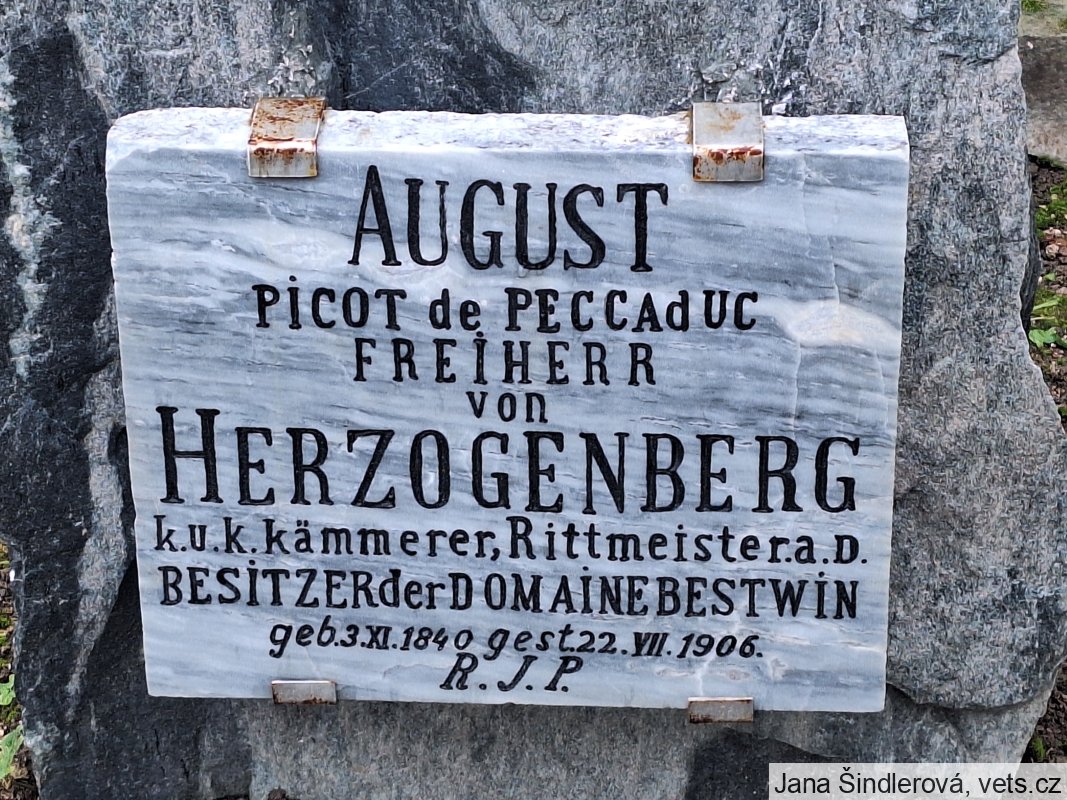 AUGUST
PICOT de PECCAdUC
FREIHERR
von
HERZOGENBERG
k.u.k.kämmerer, Rittmeister.a.D.
BESITZER der DOMAINE BESTWIN
geb.3.XI.1840 gest.22.VII.1906.
R.J.P.
Jana Šindlerová, vets.cz